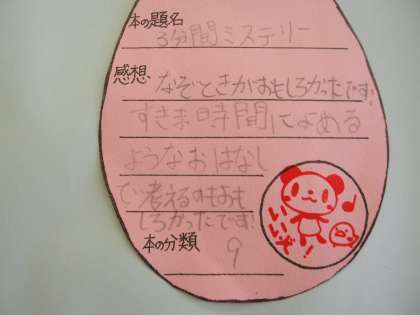 本の題名
3分間ミステリー
感想 なぞときがおもしろかったです!
すきま時間によめる
ようなおはなし
で考えるのもおも
しろかったです!
本の分類
9
いいぞ!